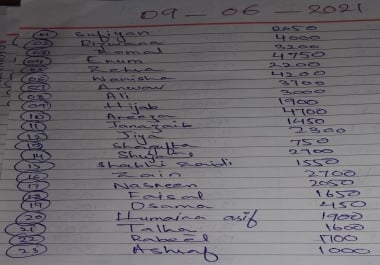 09 - 06 - 2021
01 Sufiyan 2050
02 4000
03 Kamal 3200
04 Enum 4750
05 Zehra 2200
06 Warisha 4200
07 Anwar 3700
08 Ali 3000
09 Hijab 1900
10 Areeza 4700
11 Janazaib 1450
12 Jiya 2300
13 Shagufta 750
14 2700
15 Shabbir Zaidi 1550
16 Zain 2700
17 Nasreen 2050
18 Faisal 1650
19 Osama 450
20 Humaira asif 1900
21 Talha 1600
22 Rabeel 1700
23 Ashraf 1000